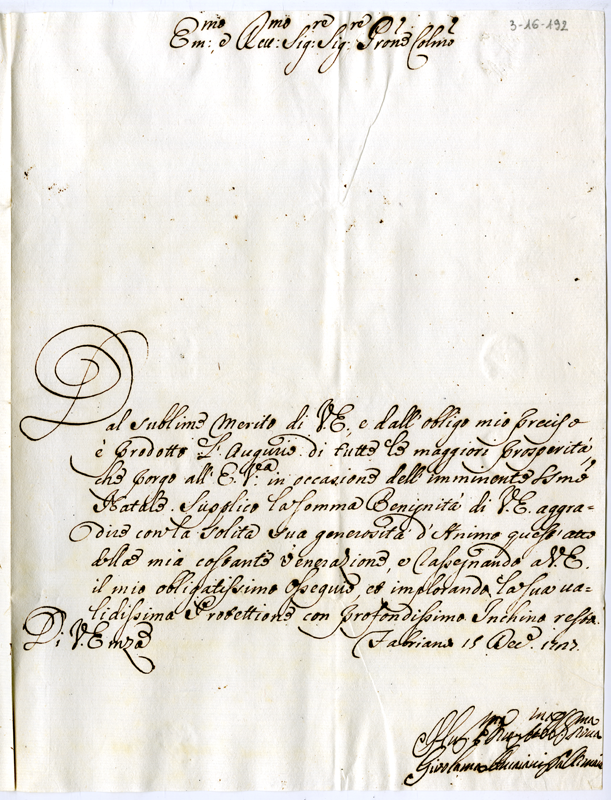 3-16-192
Em:mo e Rev:mo Sig:re Sig:re Prone Colmo
Dal sublime merito di V.E, e dall' obligo mio preciso
è prodotto L' Augurio di tutte le maggiori prosperità,
che porgo all' E.Vra in occasione dell' imminente Ssmo
Natale. Supplico la somma Benignità di V.E. aggra-
dire con la solita sua generosità d'Animo quest' atto
della mia costante venerazione, e rassegnando a V.E.
il mio obligatissimo ossequio, et implorando la sua va-
lidissima Protettione con profondissimo Inchino resto.
Di V. Emza
Fabriano 15 Dec. 1727.
Girolamo